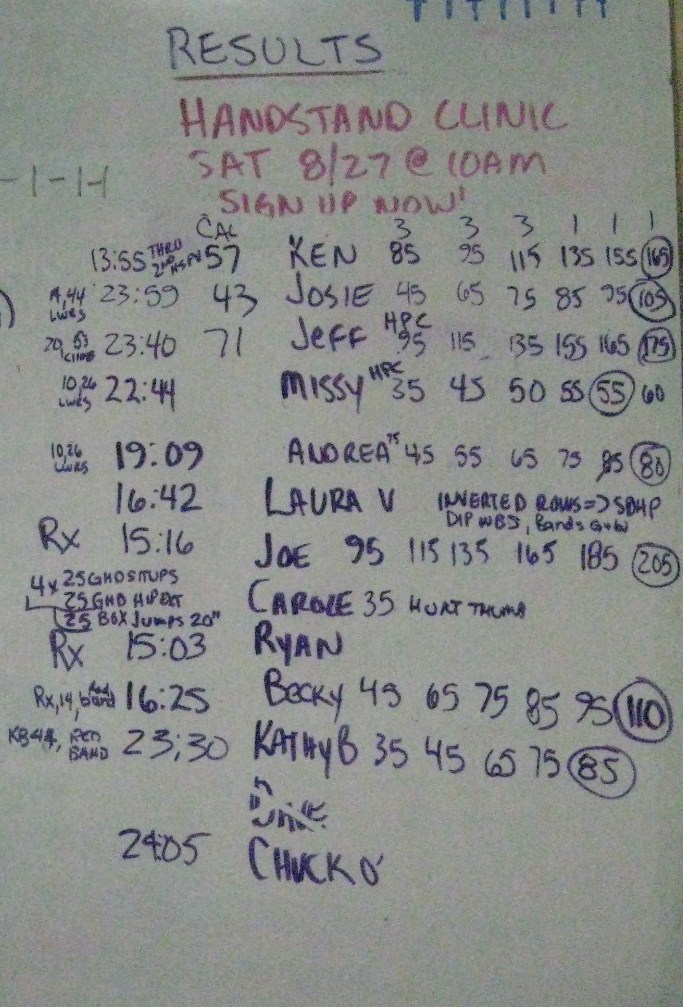 RESULTS
HANDSTAND CLINIC
SAT 8/27 @ 10AM
SIGN UP NOW!
-1-1-1
CAL 3 3 3 1 1 1
13:55 THRU 2ND HSPU 57 KEN 85 95 115 135 155 165
23:59 43 JOSIE 45 65 75 85 95 105
23:40 71 JEFF HPC 95 115 135 155 165 175
10,26 LWRS 22:44 MISSY HPC 35 45 50 55 55 60
10,26 LWRS 19:09 ANDREA 75 45 55 65 75 85 80
16:42 LAURA V INVERTED ROWS => SDHP
DIP WBS, Bands
Rx 15:16 JOE 95 115 135 165 185 205
4x 25 GHD SITUPS
25 GHD HIP EXT CAROLE 35 HURT THUMB
25 BOX JUMPS 20"
Rx 15:03 RYAN
Rx, 14, Red band 16:25 BECKY 45 65 75 85 95 110
KB44, RED BAND 23:30 KATHY B 35 45 65 75 85
24:05 CHUCK O'